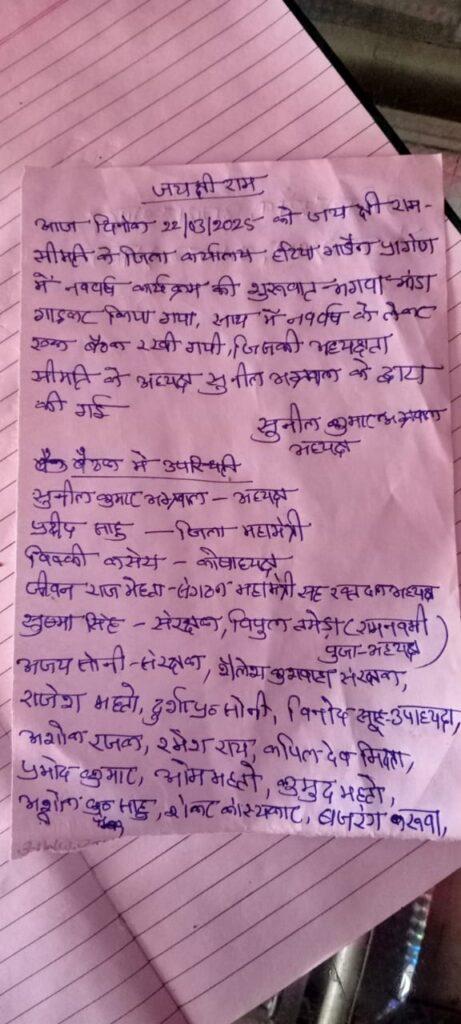 जय श्री राम
आज दिनांक 22/03/2025 को जय श्री राम-
समिति के जिला कार्यालय हटिया गार्डेन प्रांगण
में नववर्ष कार्यक्रम की शुरूवात भगवा झंडा
गाड़कर किया गया, साथ में नववर्ष को लेकर
एक बैठक रखी गयी, जिसकी अध्यक्षता
समिति के अध्यक्ष सुनील अग्रवाल के द्वारा
की गई
सुनील कुमार अग्रवाल
अध्यक्ष
बैठक में उपस्थिती
सुनील कुमार अग्रवाल - अध्यक्ष
प्रदीप साहु - जिला महामंत्री
विक्की कसेरा - कोषाध्यक्ष
जीवन राज मेहता - संगठन महामंत्री सह रक्तदान अध्यक्ष
सुषमा सिंह - संरक्षक, विपुल तमेड़ा (रामनवमी
पुजा-अध्यक्ष)
अजय सोनी - संरक्षक, शैलेश कुशवाहा संरक्षक,
राजेश महतो, दुर्गा प्र० सोनी, विनोद साहू-उपाध्यक्ष,
अशोक राजक, रमेश राय, कपिल देव
प्रमोद कुमार, ओम महतो, कुमुद महतो,
कु० साहु, शंकर बजरंग